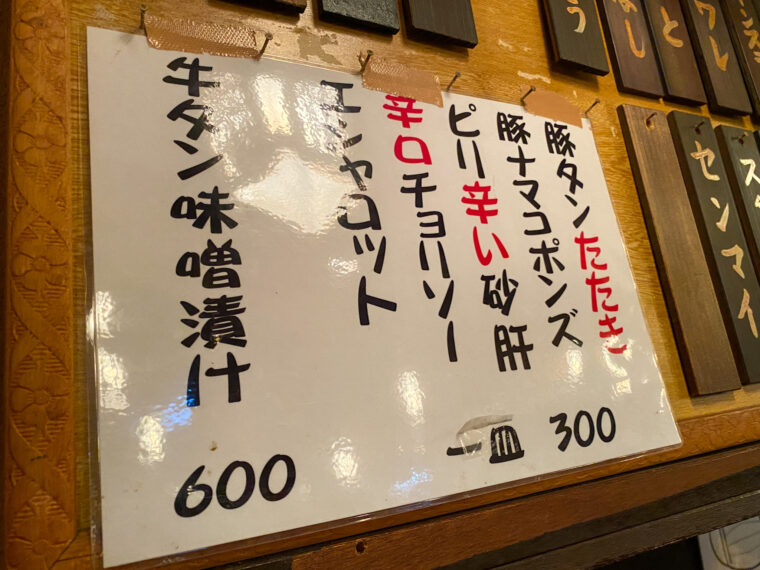 豚タンたたき
豚ナマコポンズ
ピリ辛い砂肝
辛口チョリソー
エシャロット
一皿 300
牛タン味噌漬け
600
センマイ